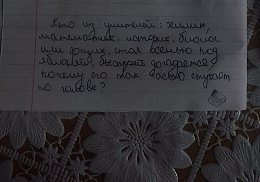 Кто из учителей: химик,
математик, историк, биолог
или физик, стоя осенью под
яблоней, быстрей догадается
почему его так часто стукает
по голове?